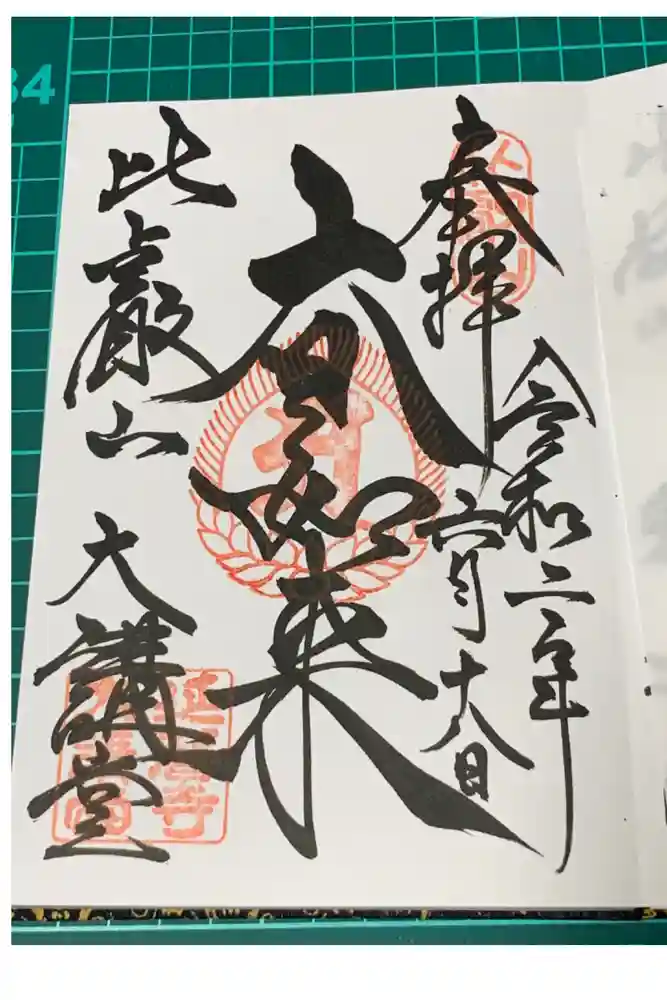 奉拝
令和二年
六月十八日
大日如来
比叡山
大講堂